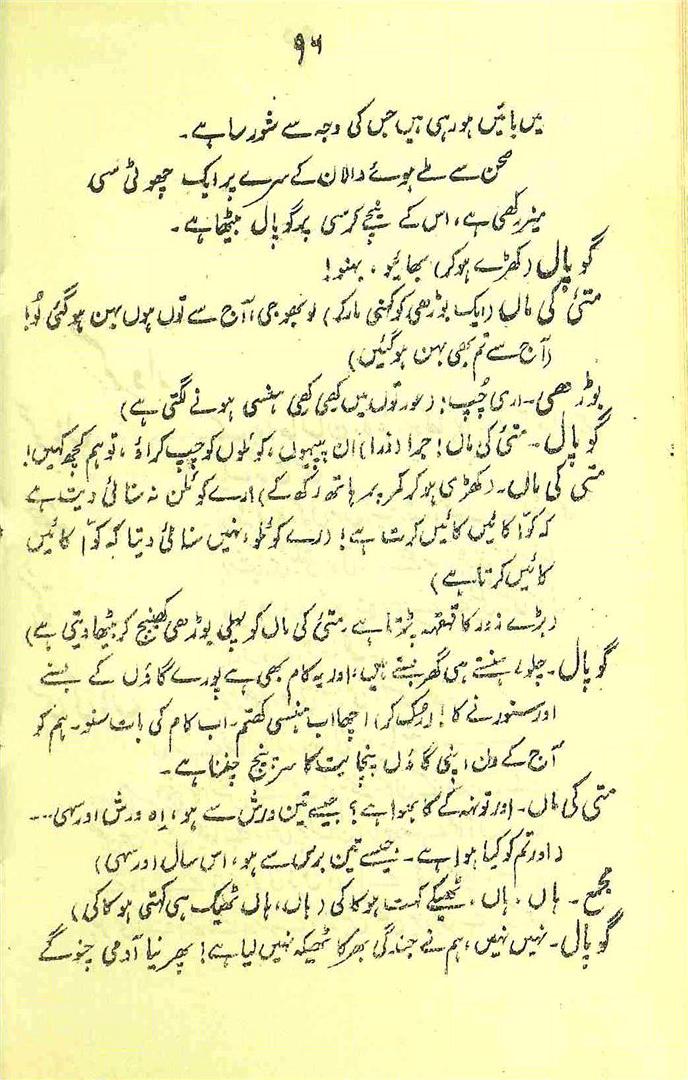 ۹۵
میں باتیں ہو رہی ہیں جس کی وجہ سے شور سا ہے۔
صحن سے ملے ہوئے دالان کے سرے پر ایک چھوٹی سی
میز رکھی ہے، اس کے نیچے کرسی پر گوپال بیٹھا ہے۔
گوپال (کھڑے ہو کر) بھائیو، بہنو!
متی کی ماں (ایک بوڑھی کو کہنی مار کر) لو بھوجی، آج سے توں ہوں بہن ہو گئی
(آج سے تم بھی بہن ہو گئیں)
بوڑھی۔ اری چپ! (عورتوں میں کھی کھی ہنسی ہونے لگتی ہے)
گوپال۔ متی کی ماں! جرا (ذرا) ان پپیہوں، کوئلوں کو چپ کراؤ، تو ہم کچھ کہیں!
متی کی ماں۔ (کھڑی ہو کر کمر پر ہاتھ رکھ کے) ارے کوئلن نہ سنائی دیت ہے
کہ کوّا کائیں کائیں کرت ہے! (ارے کوئلو، نہیں سنائی دیتا کہ کوّا کائیں
کائیں کرتا ہے)
(بڑے زور کا قہقہہ پڑتا ہے۔ متی کی ماں کو پہلی بوڑھی کھینچ کر بٹھا دیتی ہے)
گوپال۔ چلو، ہنستے ہی گھر بستے ہیں، اور یہ کام بھی ہے پورے گاؤں کے بسنے
اور سنورنے کا! (رک کر) اچھا اب ہنسی کھتم۔ اب کام کی بات سنو۔ ہم کو
آج کے دن اپنی گاؤں پنچایت کا سرپنچ چننا ہے۔
متی کی ماں۔ اور تونہہ کے کا بھوا ہے؟ جیسے تین ورش سے ہو، اِہ ورش اور سہی...
(اور تم کو کیا ہوا ہے۔ جیسے تین برس سے ہو، اس سال اور سہی)
مجمع۔ ہاں، ہاں، ٹھیکے کہت ہو کاکی (ہاں، ہاں ٹھیک ہی کہتی ہو کاکی)
گوپال۔ نہیں نہیں، ہم نے جندگی بھر کا ٹھیکہ نہیں لیا ہے! پھر نیا آدمی چنو گے